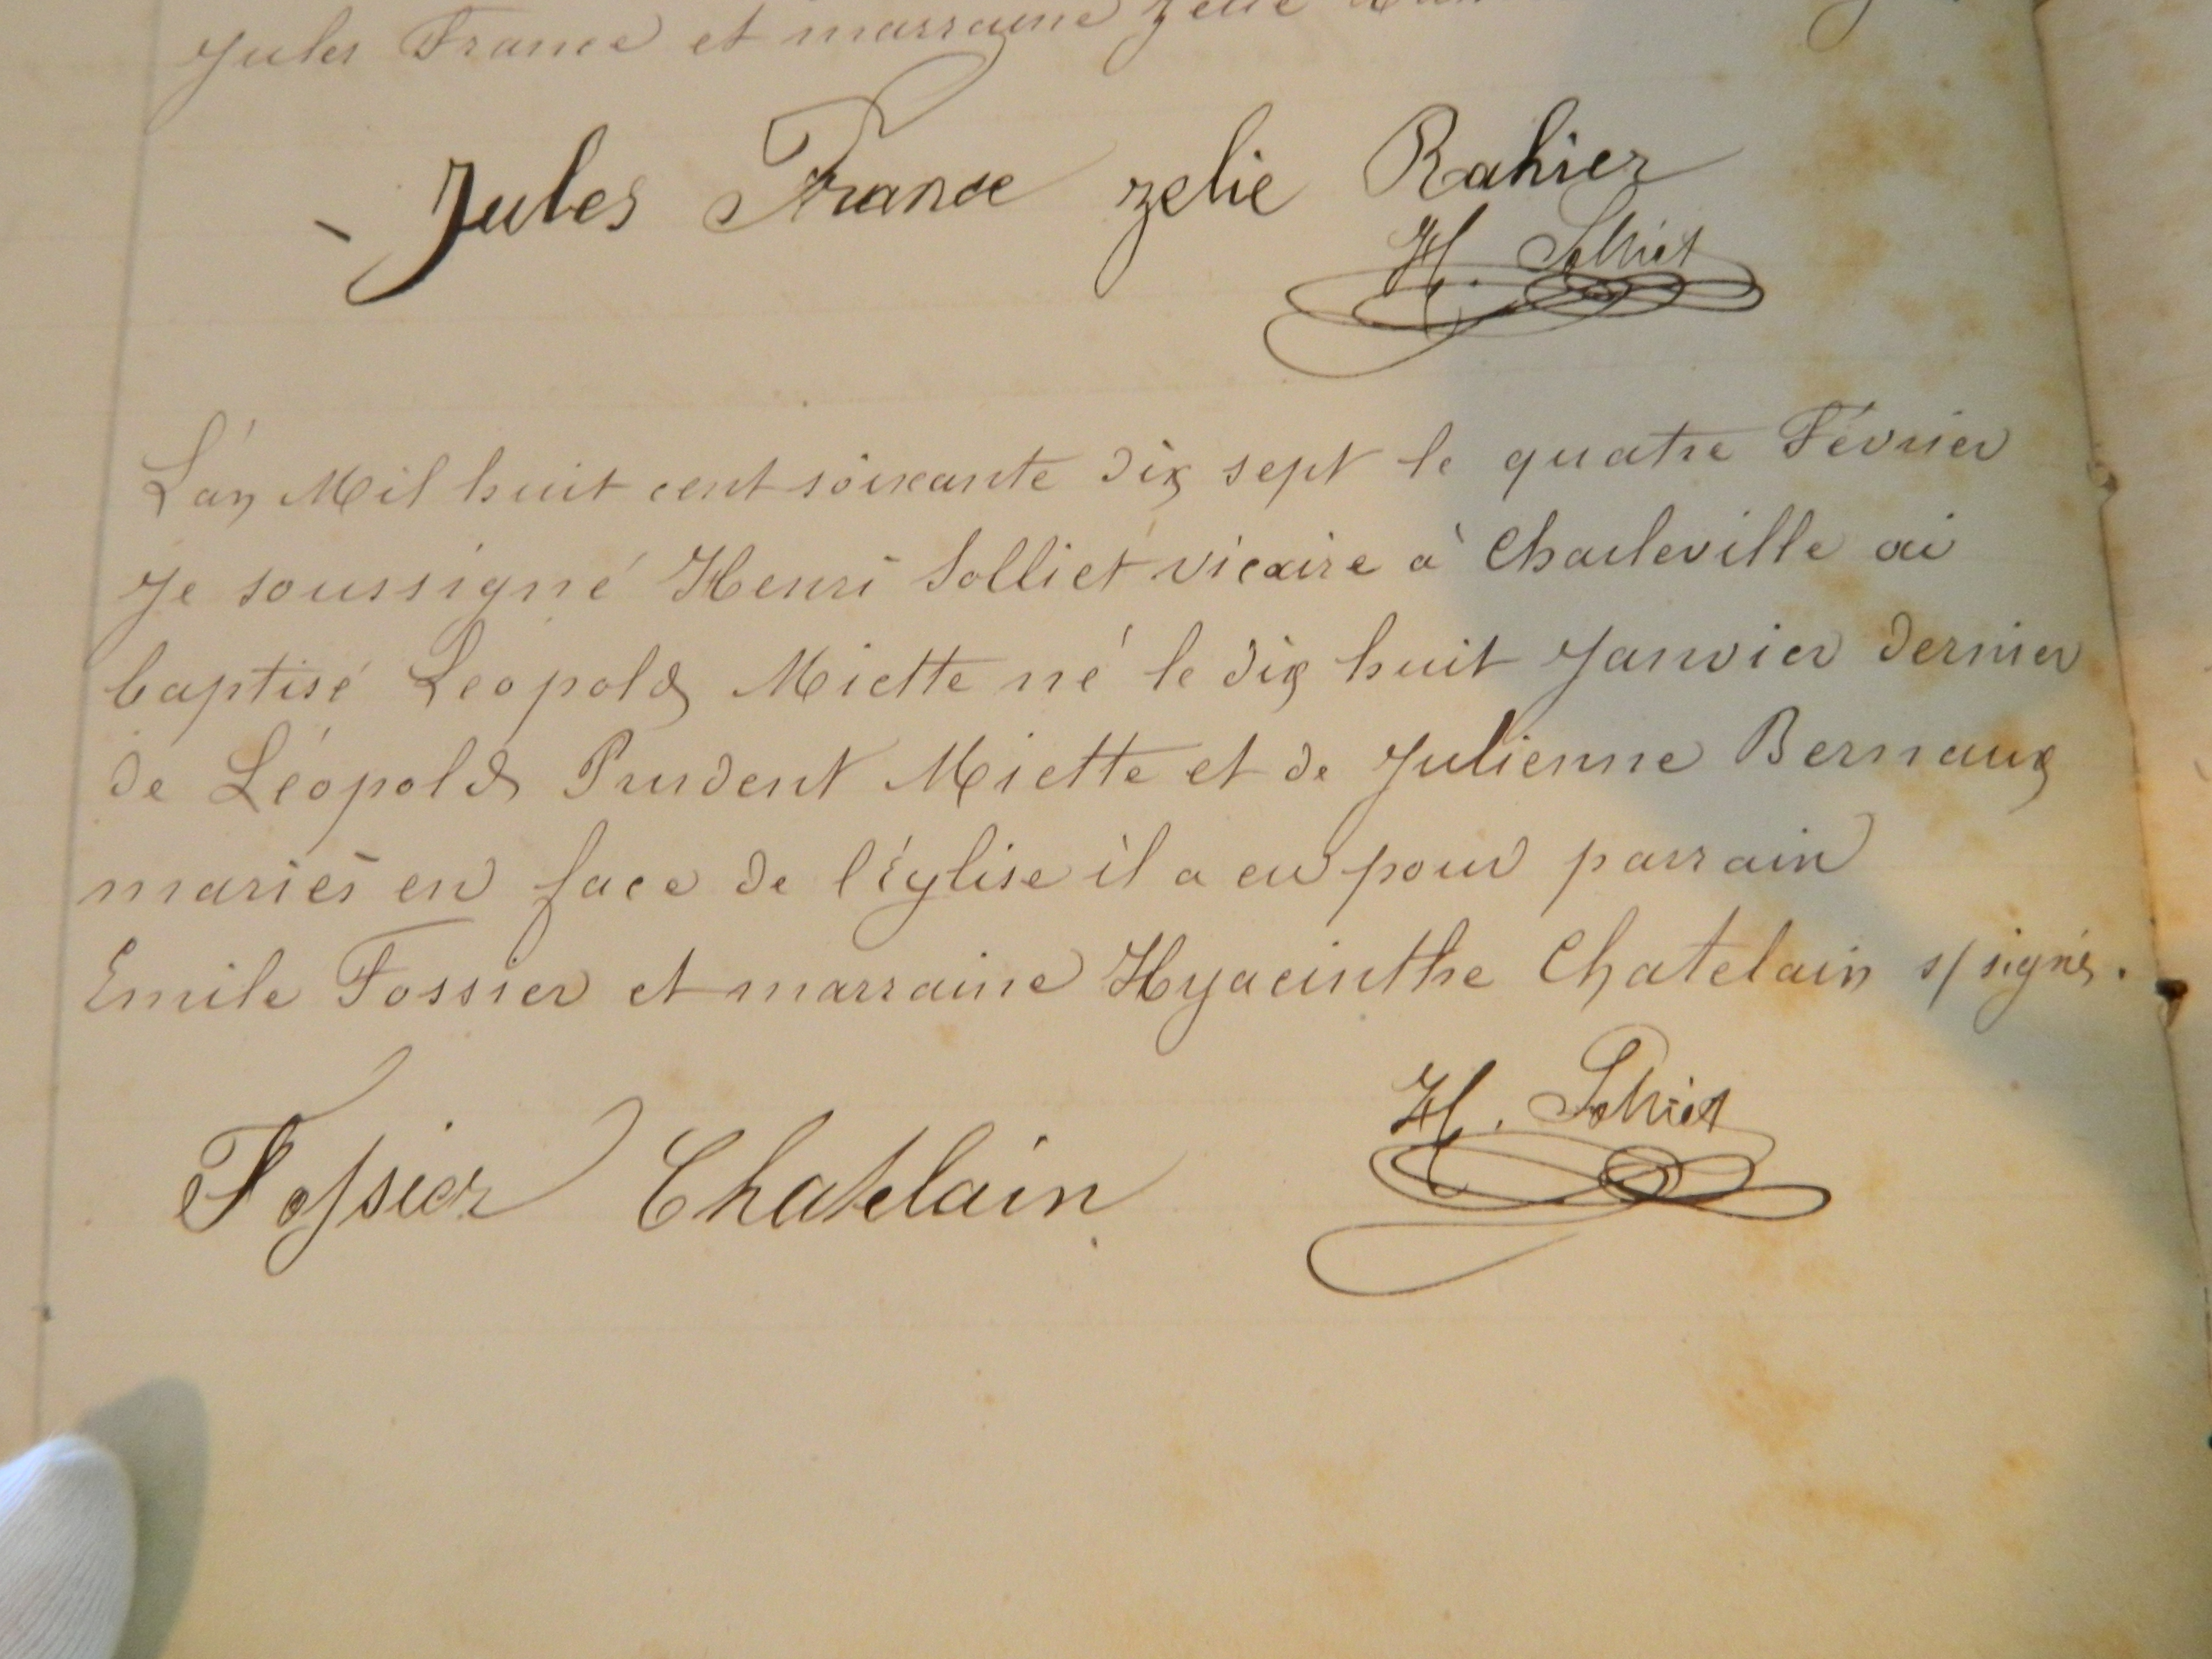 Jules France et marraine Zelie
Jules France zelie Rahier
H. Solliet
L'an Mil huit cent soixante dix sept le quatre Février
Je soussigné Henri Solliet vicaire à Charleville ai
baptisé Leopold Miette né le dix huit Janvier dernier
de Léopold Prudent Miette et de Julienne Bernaux
mariés en face de l'église il a eu pour parrain
Emile Fossier et marraine Hyacinthe Chatelain s/signés.
Fossier Chatelain H. Solliet